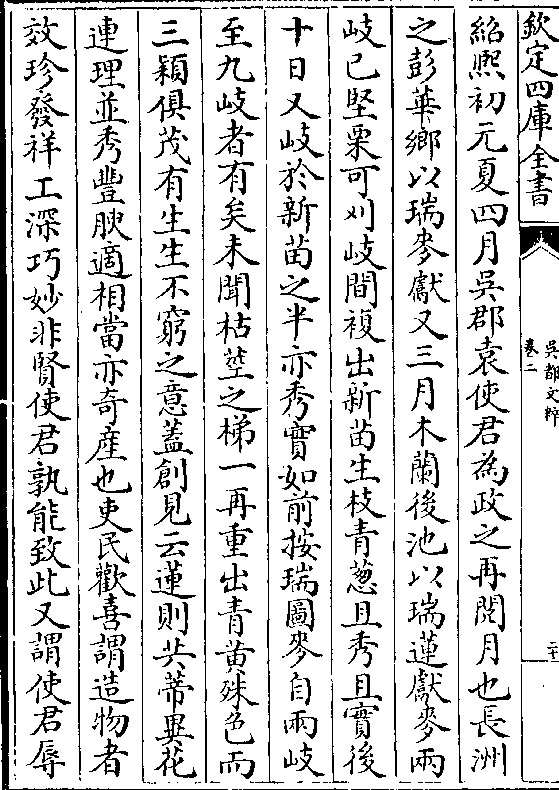 欽定四庫全書
吳都文粹
卷二
二十
紹熙初元夏四月吳郡袁使君為政之再閱月也長洲
之彭華鄉以瑞麥獻又三月木蘭後池以瑞蓮獻麥兩
岐已堅栗可刈岐間複出新苗生枝青葱且秀且實後
十日又岐於新苗之半亦秀實如前按瑞圖麥自兩岐
至九岐者有矣未聞枯莖之梯一再重出青黃殊色而
三穎俱茂有生生不窮之意蓋創見云蓮則共蒂異花
連理並秀豐腴適相當亦奇産也吏民歡喜謂造物者
效珍發祥工深巧妙非賢使君孰能致此又謂使君辱